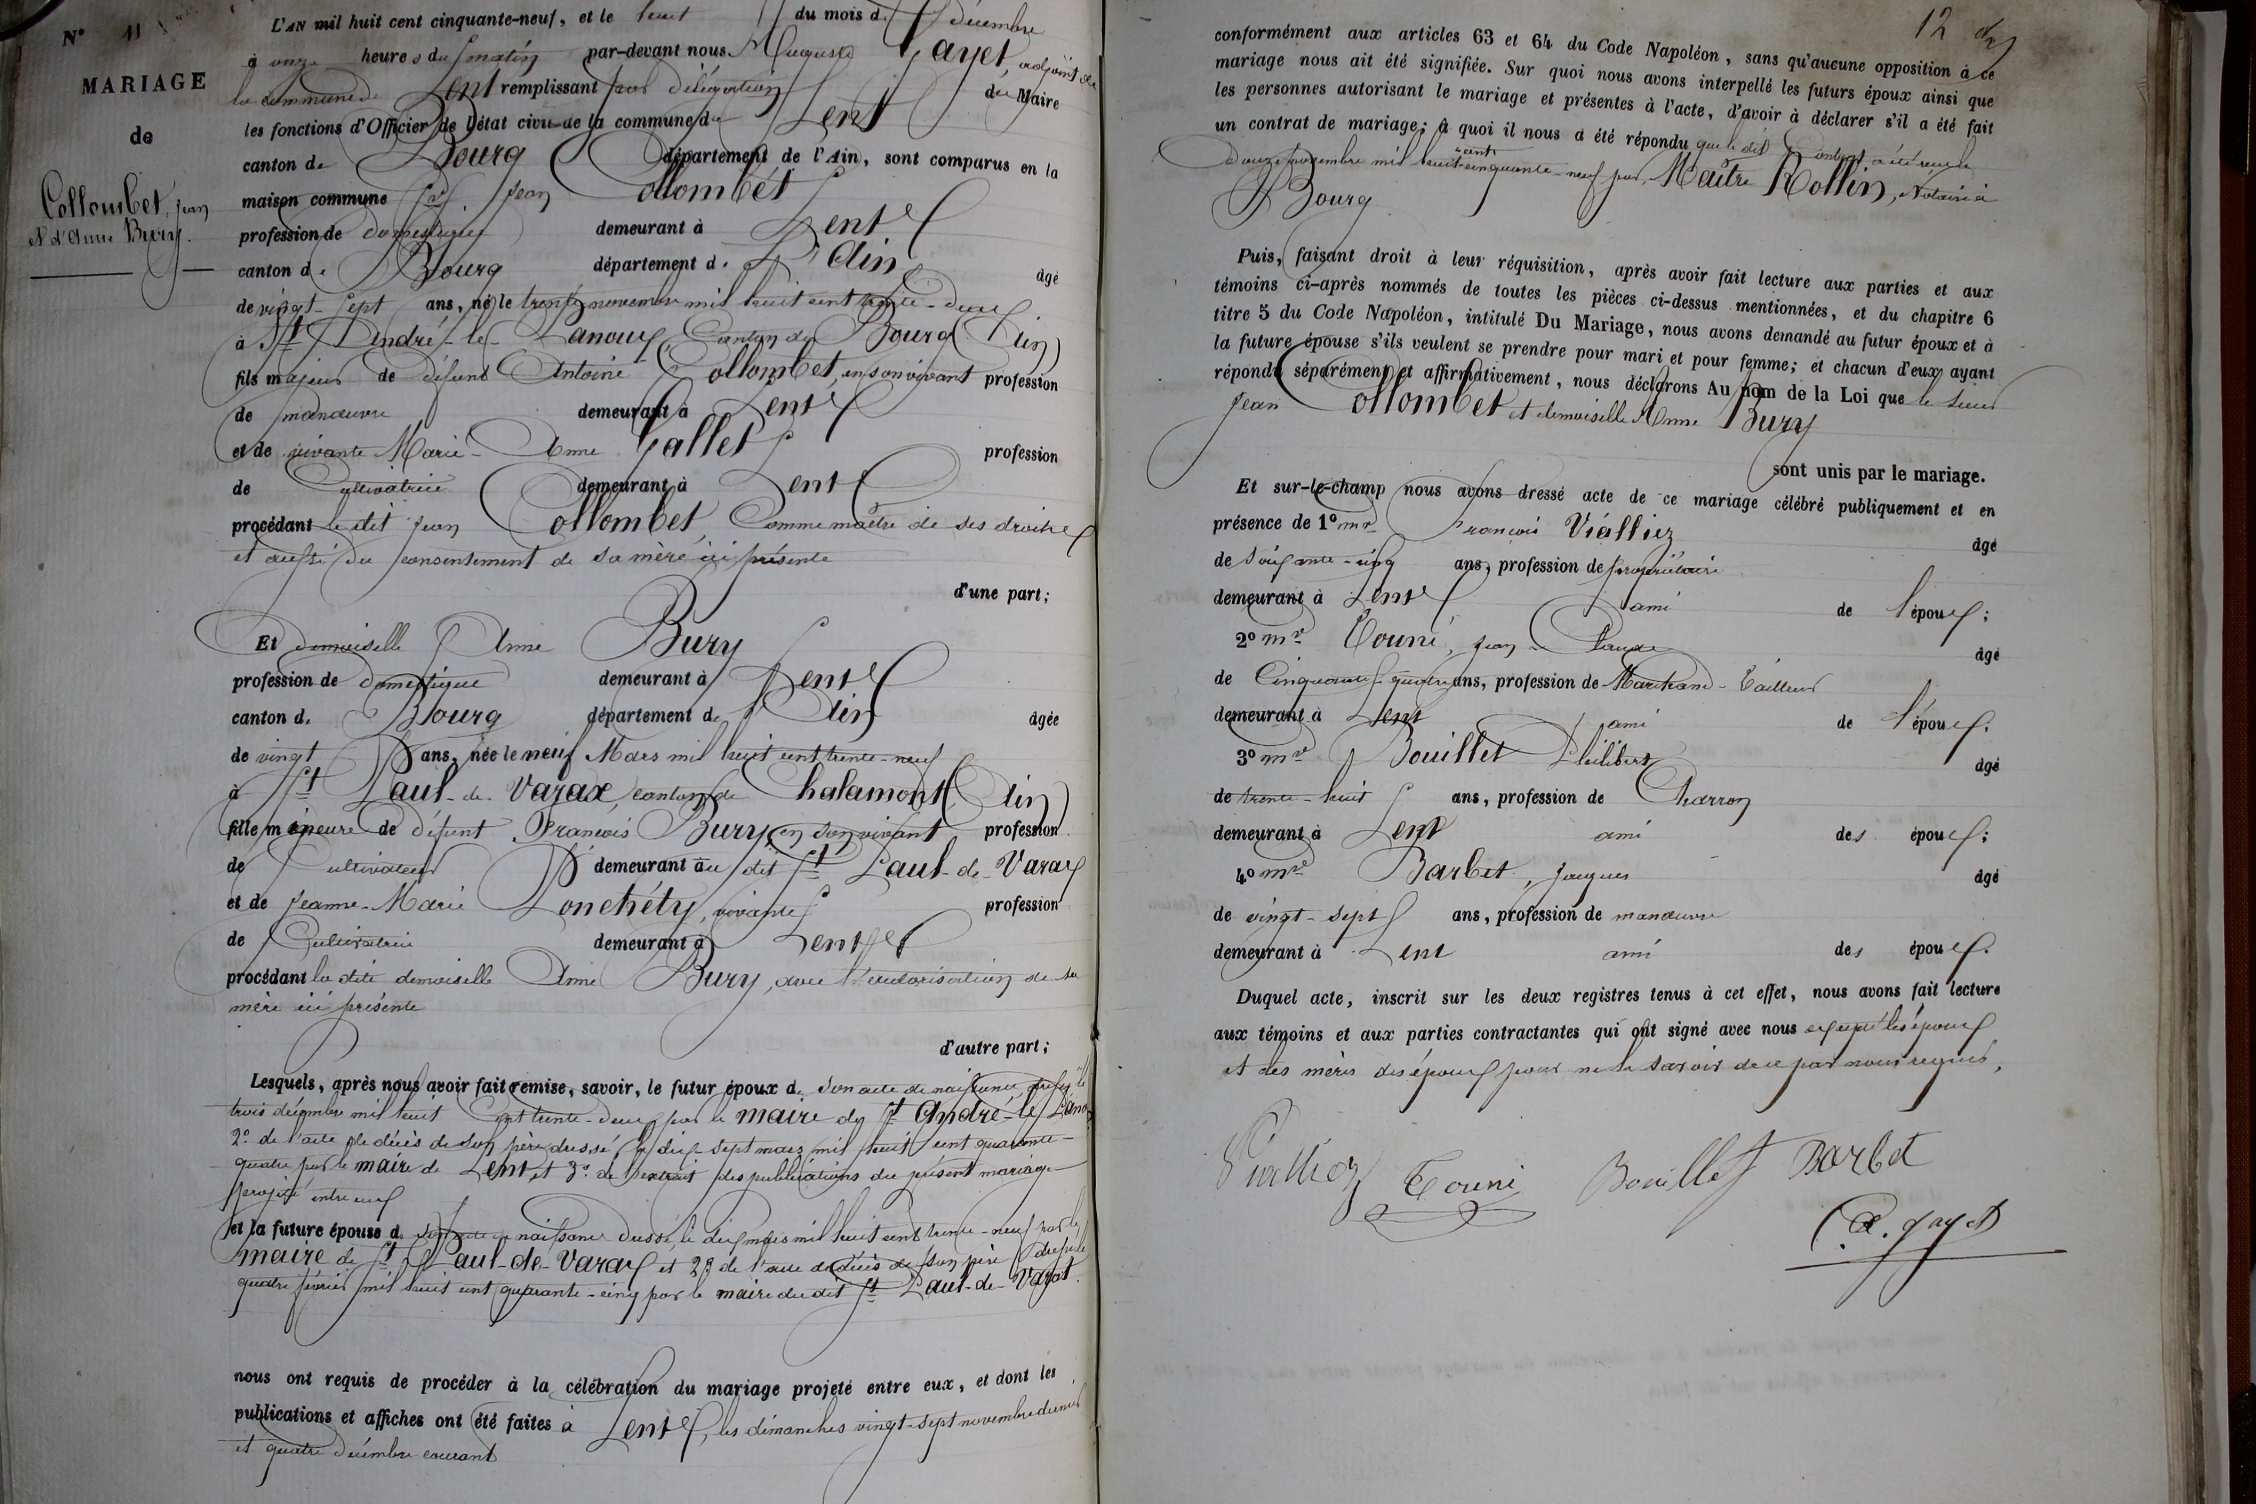 N° 11
MARIAGE
de
Collombet, Jean
et d'Anne Bury.
L'AN mil huit cent cinquante-neuf, et le huit du mois de Décembre
à onze heures du matin par-devant nous Auguste Gayet adjoint de
la commune de Lent remplissant par délégation du Maire
les fonctions d'Officier de l'état civil de la commune de Lent
canton de Bourg département de l'Ain, sont comparus en la
maison commune Sr Jean Collombet
profession de domestique demeurant à Lent
canton de Bourg département de L'Ain âgé
de vingt-sept ans, né le trente novembre mil huit cent trente-deux
à St André-le-Panoux, Canton de Bourg (Ain)
fils majeur de défunt Antoine Collombet, en son vivant profession
de manœuvre demeurant à Lent
et de vivante Marie-Anne Gallet profession
de Cultivatrice demeurant à Lent
procédant le dit Jean Collombet Comme maître de ses droits
et aussi du consentement de sa mère ici présente
d'une part;
Et demoiselle Anne Bury
profession de domestique demeurant à Lent
canton de Bourg département de l'Ain âgée
de vingt ans, née le neuf Mars mil huit cent trente-neuf
à St Paul-de-Varax, canton de Chalamont (Ain)
fille mineure de défunt François Bury, en son vivant profession
de Cultivateur demeurant au dit St Paul-de-Varax
et de Jeanne-Marie Ponchéty, vivante profession
de Cultivatrice demeurant à Lent
procédant la dite demoiselle Anne Bury, avec l'autorisation de sa
mère ici présente
d'autre part;
Lesquels, après nous avoir fait remise, savoir, le futur époux de son acte de naissance, dressé le
trois décembre mil huit cent trente-deux par le maire de St André-le-Panoux
2° de l'acte de décès de son père dressé le dix-sept mars mil huit cent quarante-
quatre par le maire de Lent, et 3° de l'extrait des publications du présent mariage
projeté entre eux
et la future épouse de son acte de naissance dressé, le dix mars mil huit cent trente-neuf par le
maire de St Paul-de-Varax et 2° de l'acte de décès de son père dressé le
quatre février mil huit cent quarante-cinq par le maire du dit St Paul-de-Varax.
nous ont requis de procéder à la célébration du mariage projeté entre eux, et dont les
publications et affiches ont été faites à Lent, les dimanches vingt-sept novembre dernier
et quatre décembre courant
12
conformément aux articles 63 et 64 du Code Napoléon, sans qu'aucune opposition à ce
mariage nous ait été signifiée. Sur quoi nous avons interpellé les futurs époux ainsi que
les personnes autorisant le mariage et présentes à l'acte, d'avoir à déclarer s'il a été fait
un contrat de mariage; à quoi il nous a été répondu que le dit Contrat a été reçu le
douze novembre mil huit cent cinquante-neuf par, Maître Rollin, Notaire à
Bourg
Puis, faisant droit à leur réquisition, après avoir fait lecture aux parties et aux
témoins ci-après nommés de toutes les pièces ci-dessus mentionnées, et du chapitre 6
titre 5 du Code Napoléon, intitulé Du Mariage, nous avons demandé au futur époux et à
la future épouse s'ils veulent se prendre pour mari et pour femme; et chacun d'eux ayant
répondu séparément et affirmativement, nous déclarons Au nom de la Loi que le sieur
Jean Collombet et demoiselle Anne Bury
sont unis par le mariage.
Et sur-le-champ nous avons dressé acte de ce mariage célébré publiquement et en
présence de 1° mr François Viallier âgé
de soixante-cinq ans, profession de propriétaire
demeurant à Lent ami de l'époux;
2° mr Touni, Jean-Claude âgé
de Cinquante-quatre ans, profession de Marchand-Tailleur
demeurant à Lent ami de l'époux.
3° mr Bouillet Philibert âgé
de trente-huit ans, profession de Charron
demeurant à Lent ami des époux;
4° mr Barbet, Jacques âgé
de vingt-sept ans, profession de manœuvre
demeurant à Lent ami des époux.
Duquel acte, inscrit sur les deux registres tenus à cet effet, nous avons fait lecture
aux témoins et aux parties contractantes qui ont signé avec nous excepté les époux
et les mères des époux pour ne le savoir de ce par nous requis,
Viallier Touni Bouillet Barbet
A. Gayet